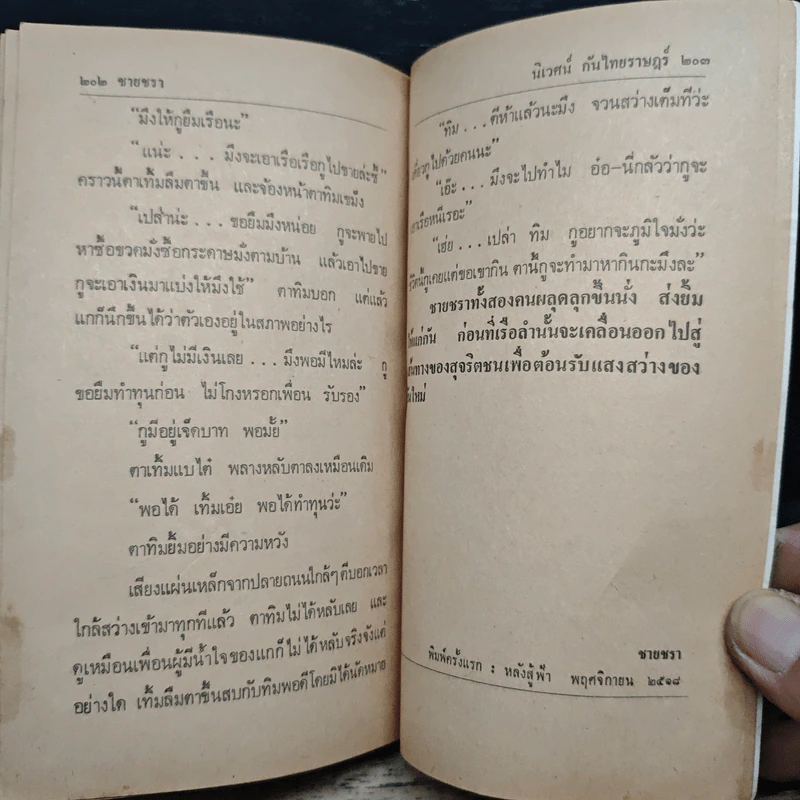 ๒๐๒ ชายชรา
“มึงให้กูยืมเรือนะ”
“แน่ะ . . . มึงจะเอาเรือเรือกูไปขายล่ะซี้”
คราวนี้ตาเท้มลืมตาขึ้น และจ้องหน้าตาทิมเขม็ง
“เปล๋าน่ะ . . . ขอยืมมึงหน่อย กูจะพายไป
หาซื้อขวดมั่งซื้อกระดาษมั่งตามบ้าน แล้วเอาไปขาย
กูจะเอาเงินมาแบ่งให้มึงใช้” ตาทิมบอก แต่แล้ว
แกก็นึกขึ้นได้ว่าตัวเองอยู่ในสภาพอย่างไร
“แต่กูไม่มีเงินเลย . . . มึงพอมีไหมล่ะ กู
ขอยืมทำทุนก่อน ไม่โกงหรอกเพื่อน รับรอง”
“กูมีอยู่เจ็ดบาท พอมั้ย”
ตาเท้มแบไต๋ พลางหลับตาลงเหมือนเดิม
“พอได้ เท้มเอ๋ย พอได้ทำทุนว่ะ”
ตาทิมยิ้มอย่างมีความหวัง
เสียงแผ่นเหล็กจากปลายถนนใกล้ๆ ตีบอกเวลา
ใกล้สว่างเข้ามาทุกทีแล้ว ตาทิมไม่ได้หลับเลย และ
ดูเหมือนเพื่อนผู้มีน้ำใจของแกก็ไม่ได้หลับจริงจังแต่
อย่างใด เท้มลืมตาขึ้นสบกับทิมพอดีโดยมิได้นัดหมาย
นิเวศน์ กันไทยราษฎร์ ๒๐๓
“ทิม . . . ตีห้าแล้วนะมึง จวนสว่างเต็มทีว่ะ
กูไปด้วยคนนะ”
“เอ๊ะ . . . มึงจะไปทำไม อ๋อ–นี่กลัวว่ากูจะ
เอาเรือหนีเรอะ”
“เฮ่ย . . . เปล่า ทิม กูอยากจะภูมิใจมั่งว่ะ
กูเคยแต่ขอเขากิน ตานี้กูจะทำมาหากินกะมึงละ”
ชายชราทั้งสองคนผลุดลุกขึ้นนั่ง ส่งยิ้ม
ให้แก่กัน ก่อนที่เรือลำนั้นจะเคลื่อนออกไปสู่
เส้นทางของสุจริตชนเพื่อต้อนรับแสงสว่างของ
วันใหม่
ชายชรา
พิมพ์ครั้งแรก : หลังสู้ฟ้า พฤศจิกายน ๒๕๑๘